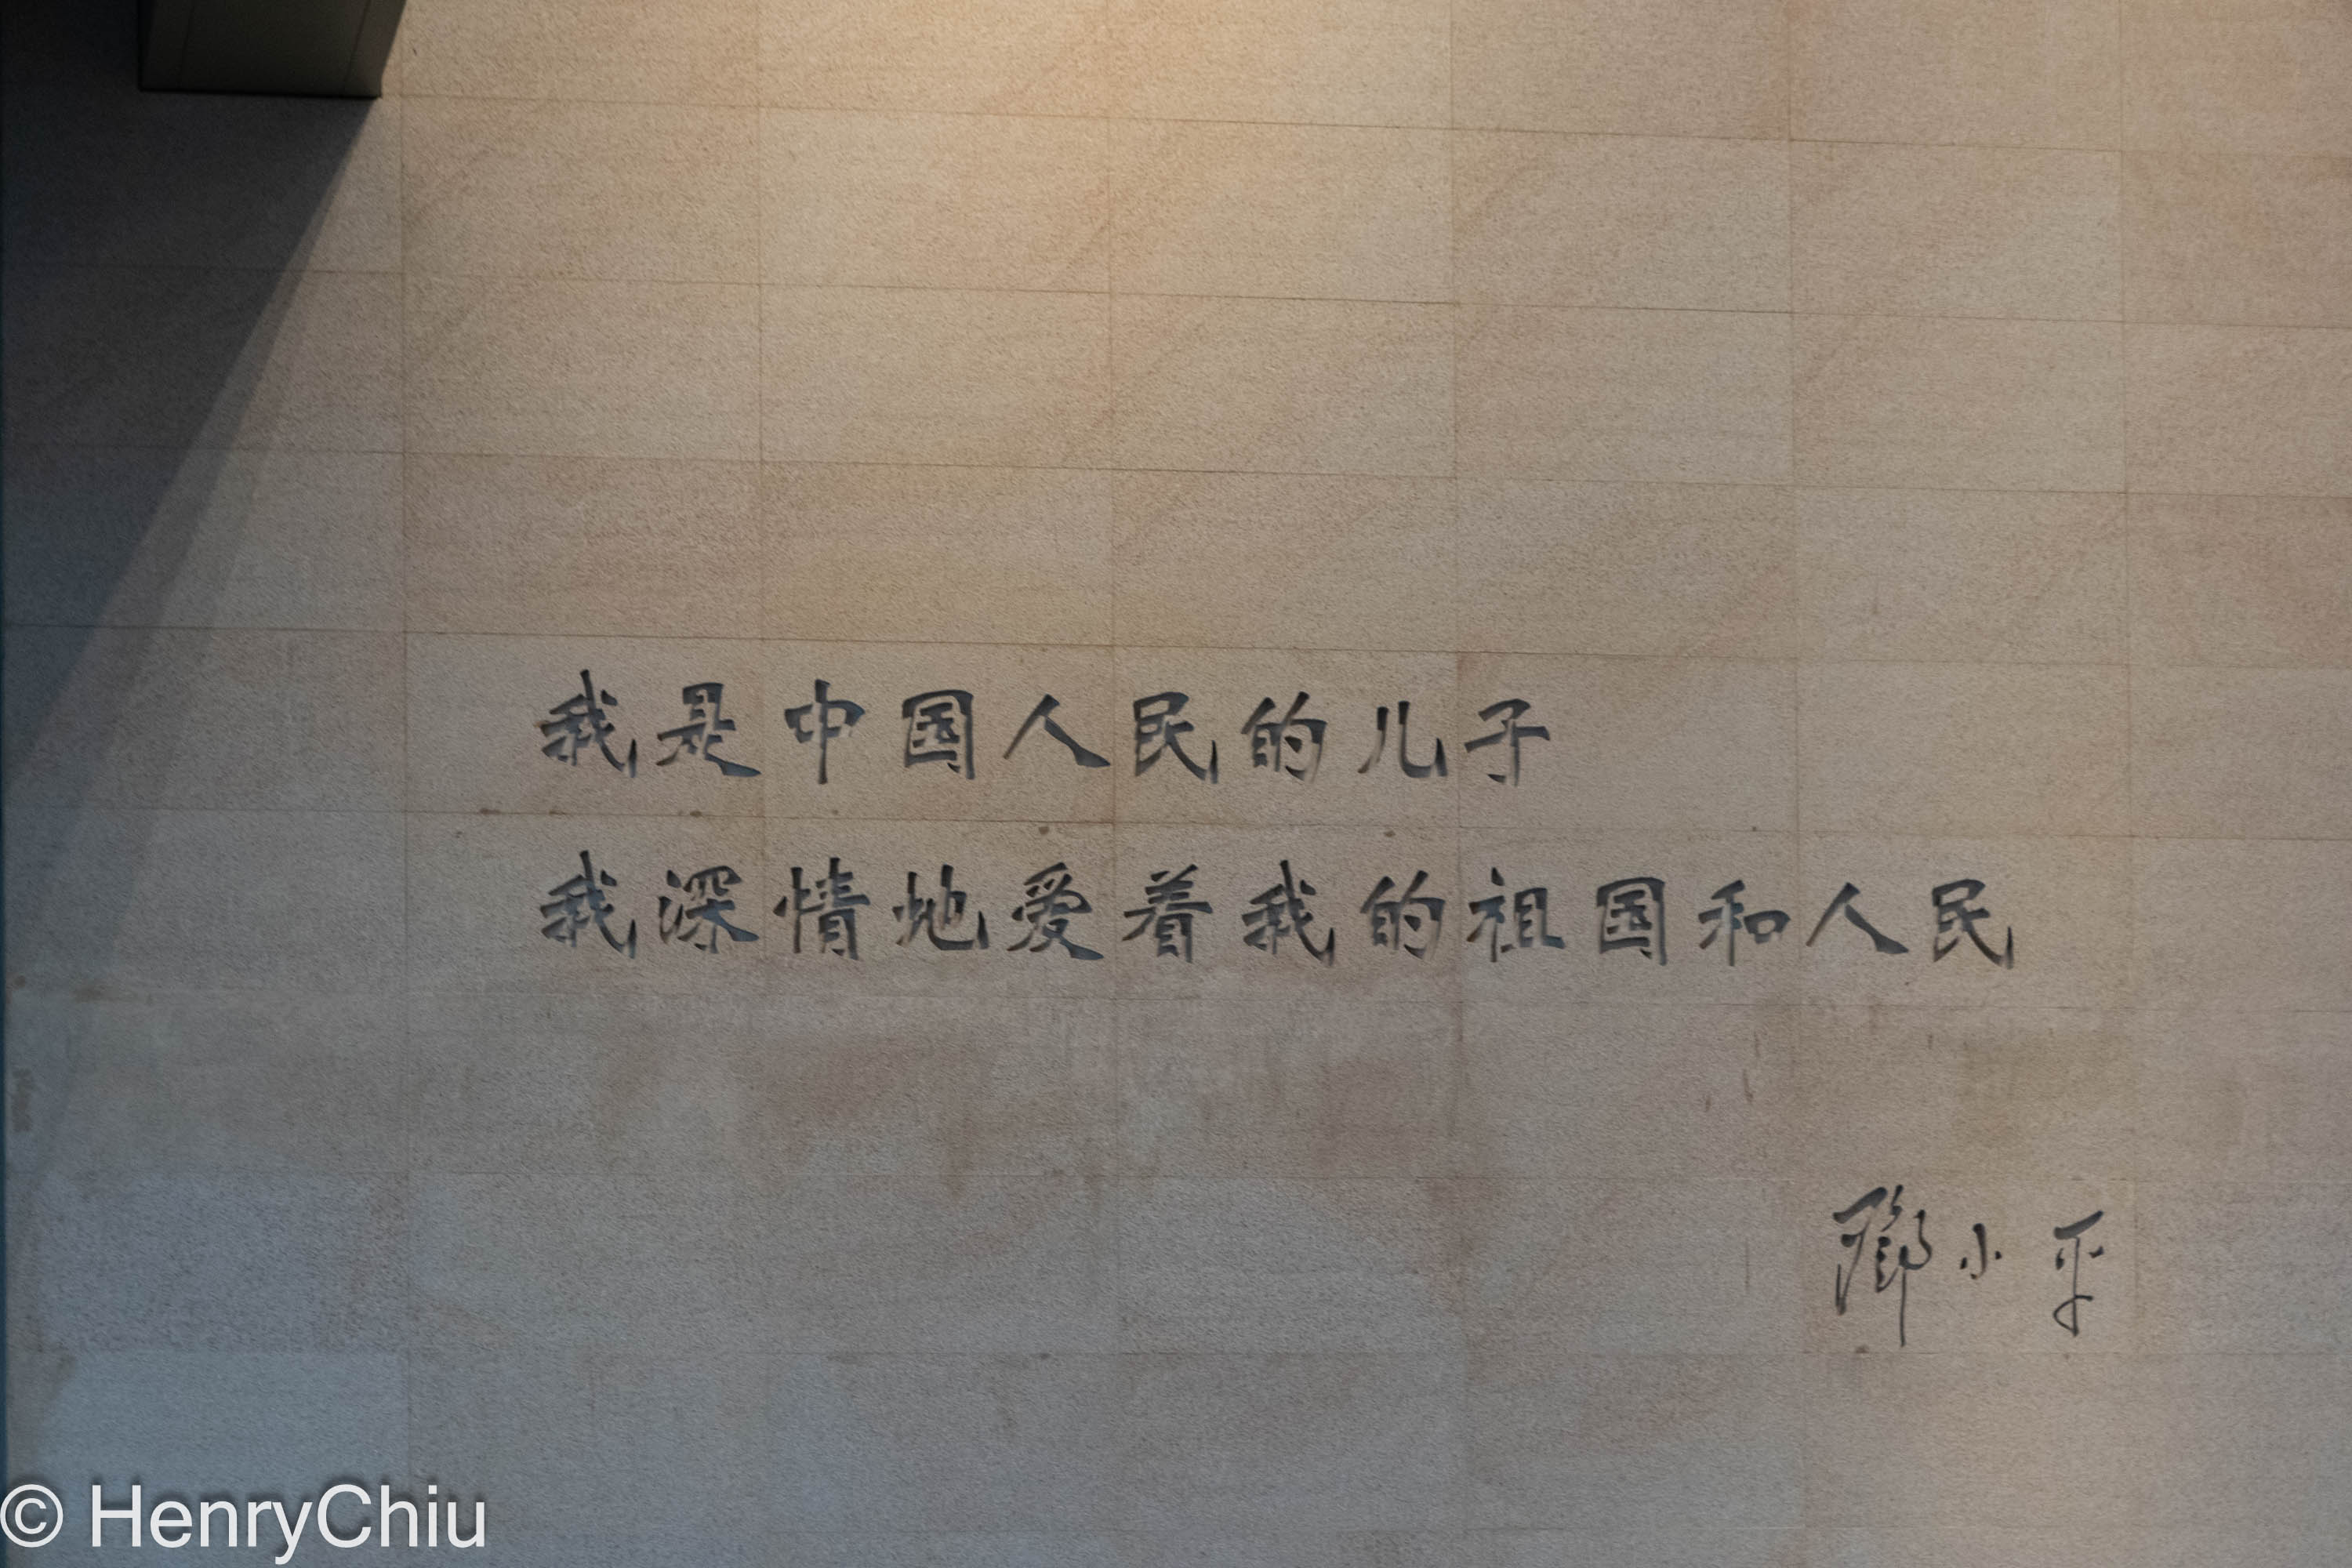 我是中国人民的儿子
我深情地爱着我的祖国和人民
邓小平
© HenryChiu